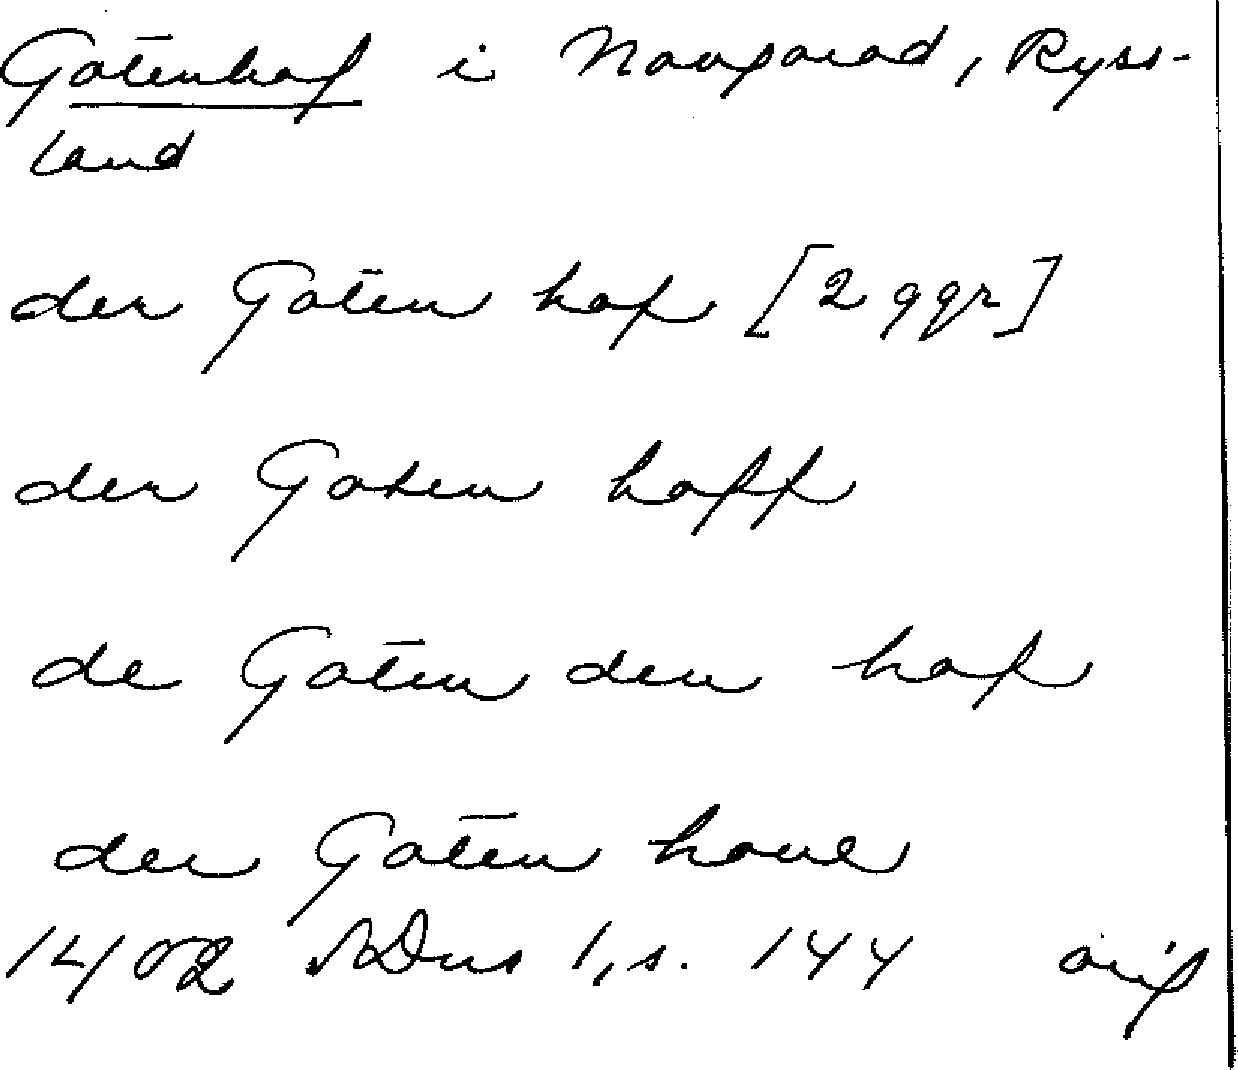 Gotenhof i Novgorod, Ryss-
land
der Goten hof [2 ggr]
der Goten hoff
de Goten den hof
den Goten houe
1402 SDns 1, s. 144 orig